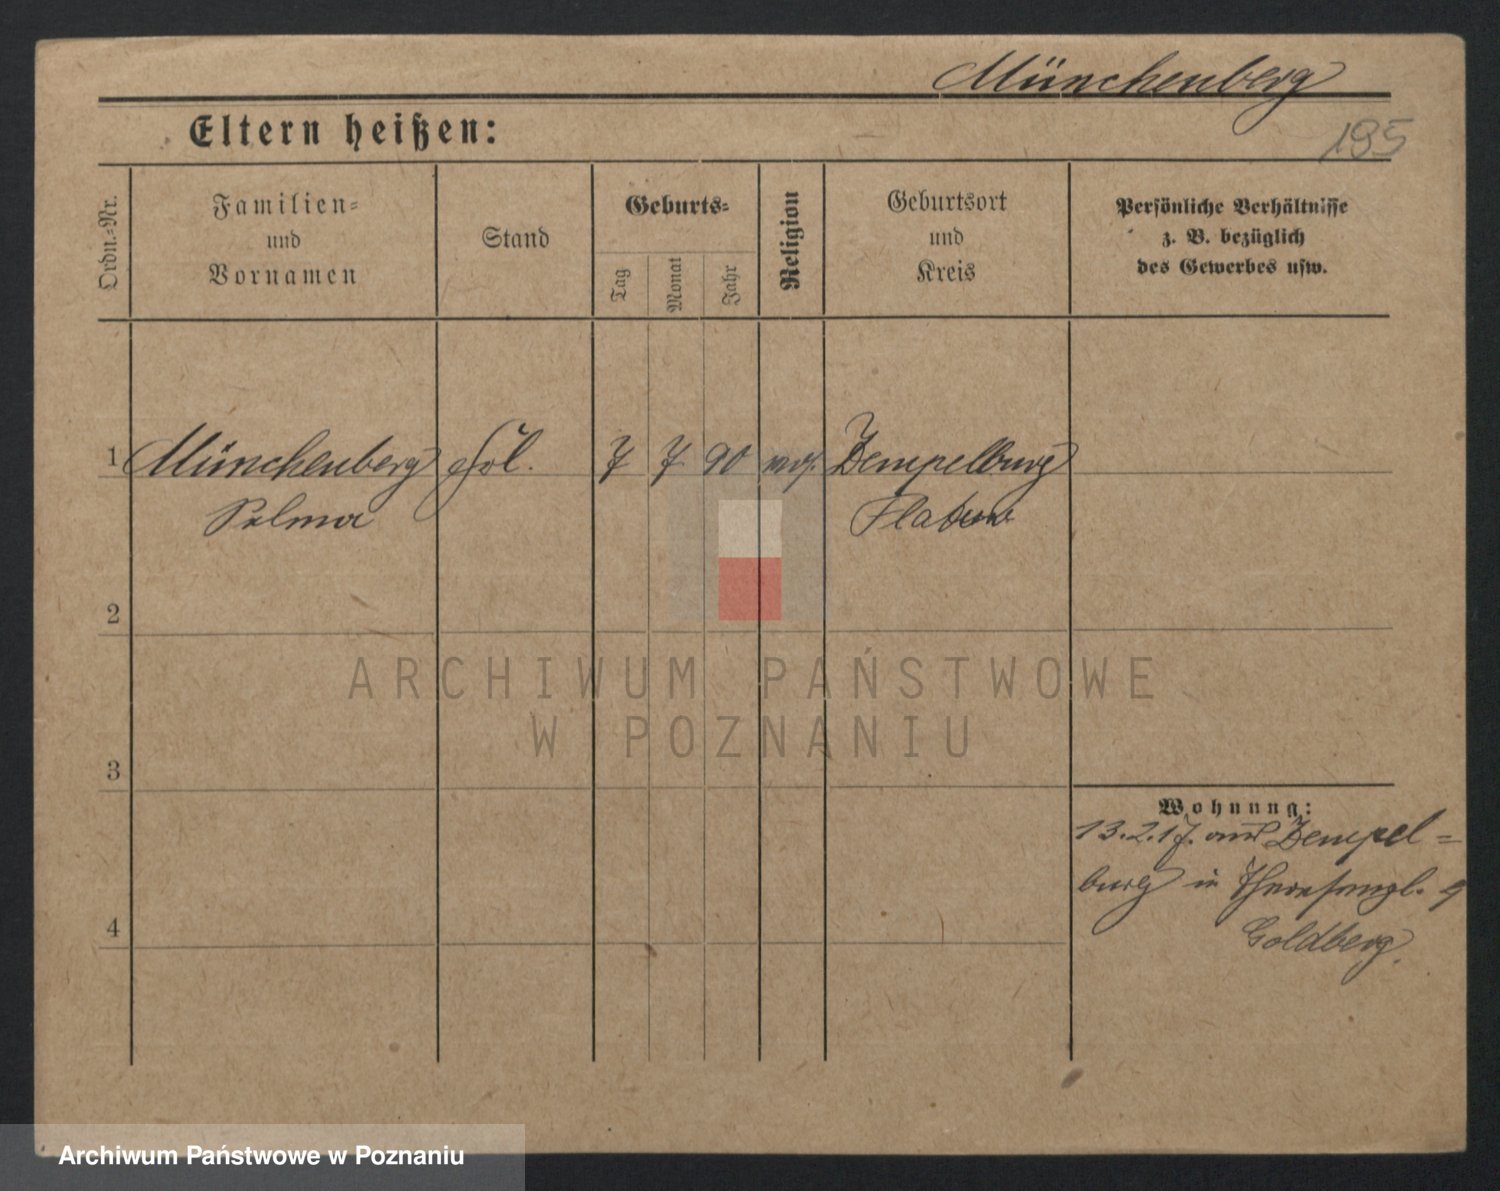 Münchenberg
195
Eltern heißen:
Ordn.-Nr.
Familien-
und
Vornamen
Stand
Geburts-
Tag
Monat
Jahr
Religion
Geburtsort
und
Kreis
Persönliche Verhältnisse
z. B. bezüglich
des Gewerbes usw.
1 Münchenberg Frl. 7 7 90 mos. Zempelburg
Selma Flatow
2
3
4
Wohnung:
13.2.17. aus Zempel=
burg in
Goldberg.
ARCHIWUM PAŃSTWOWE
W POZNANIU
Archiwum Państwowe w Poznaniu